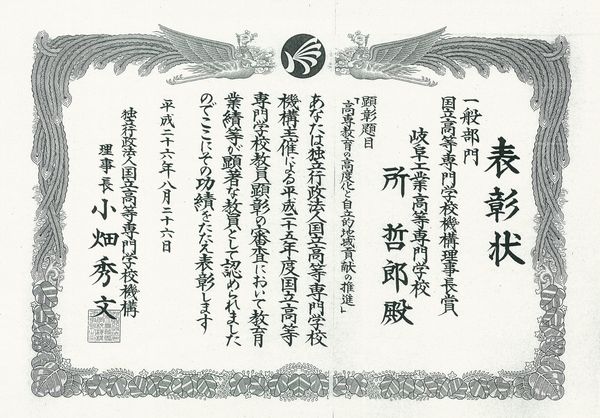 表彰状
一般部門
国立高等専門学校機構理事長賞
岐阜工業高等専門学校
所 哲郎 殿
顕彰題目
「高専教育の高度化と自立的地域貢献の推進」
あなたは独立行政法人国立高等専門学校
機構主催による平成二十六年度国立高等
専門学校教員顕彰の審査において教育
業績等が顕著な教員として認められました
のでここにその功績をたたえ表彰します
平成二十六年八月二十六日
独立行政法人国立高等専門学校機構
理事長 小畑秀文